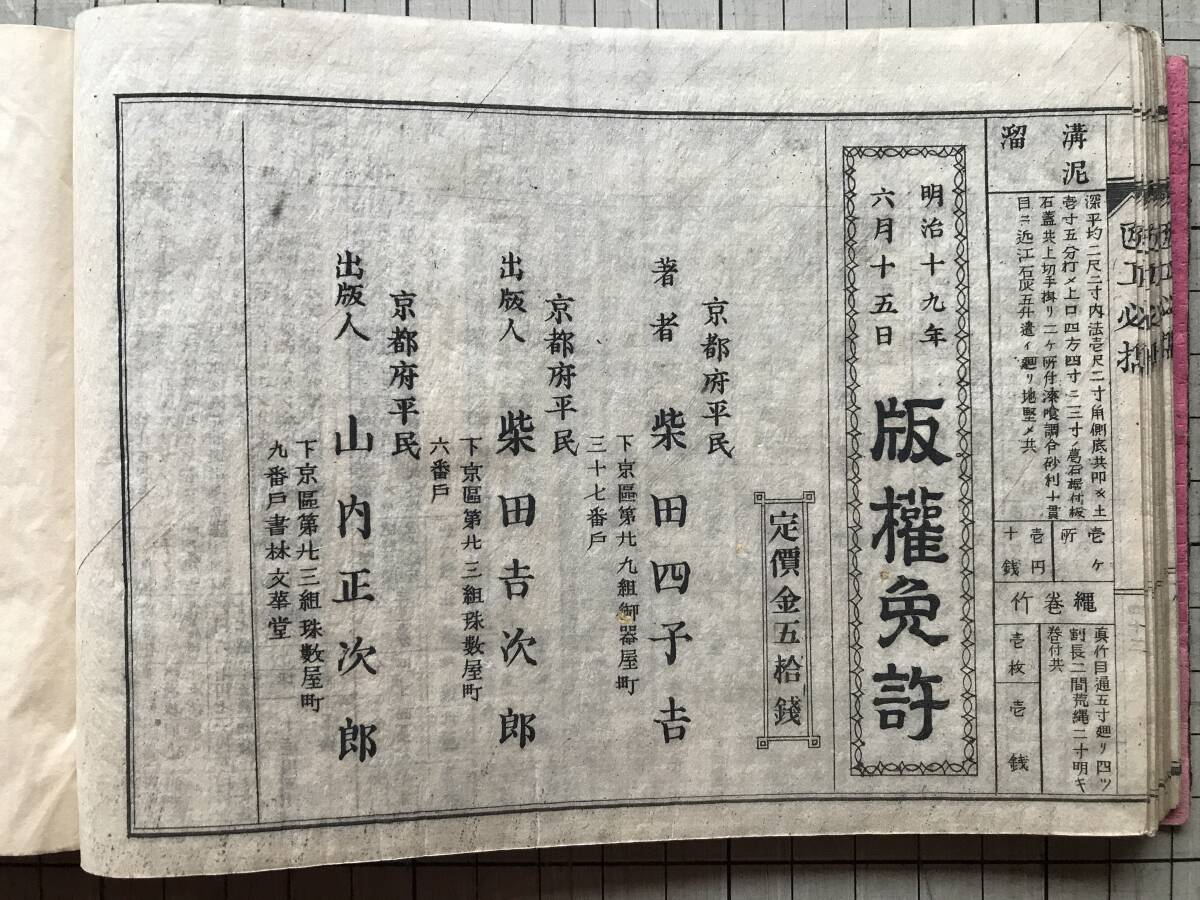 溝泥
溜
深平均二尺二寸内法壱尺二寸角側底共叩〆土
壱寸五分打メ上口四方四寸ニ三寸ノ葛石据付板
石蓋共上切手掛リ二ケ所仕漆喰調合砂利十貫
目ニ近江石灰五升遣イ廻リ地堅メ共
壱ケ
所
壱円
十銭
縄巻竹
真竹目通五寸廻リ四ツ
割長二間荒縄二寸明キ
巻付共
壱枚
壱銭
明治十九年
六月十五日
版權免許
定價金五拾錢
京都府平民
著者 柴田四子吉
下京區第廿九組御器屋町
三十七番戸
京都府平民
出版人 柴田吉次郎
下京區第廿三組珠數屋町
六番戸
京都府平民
出版人 山内正次郎
下京區第廿三組珠數屋町
九番戸書林文華堂